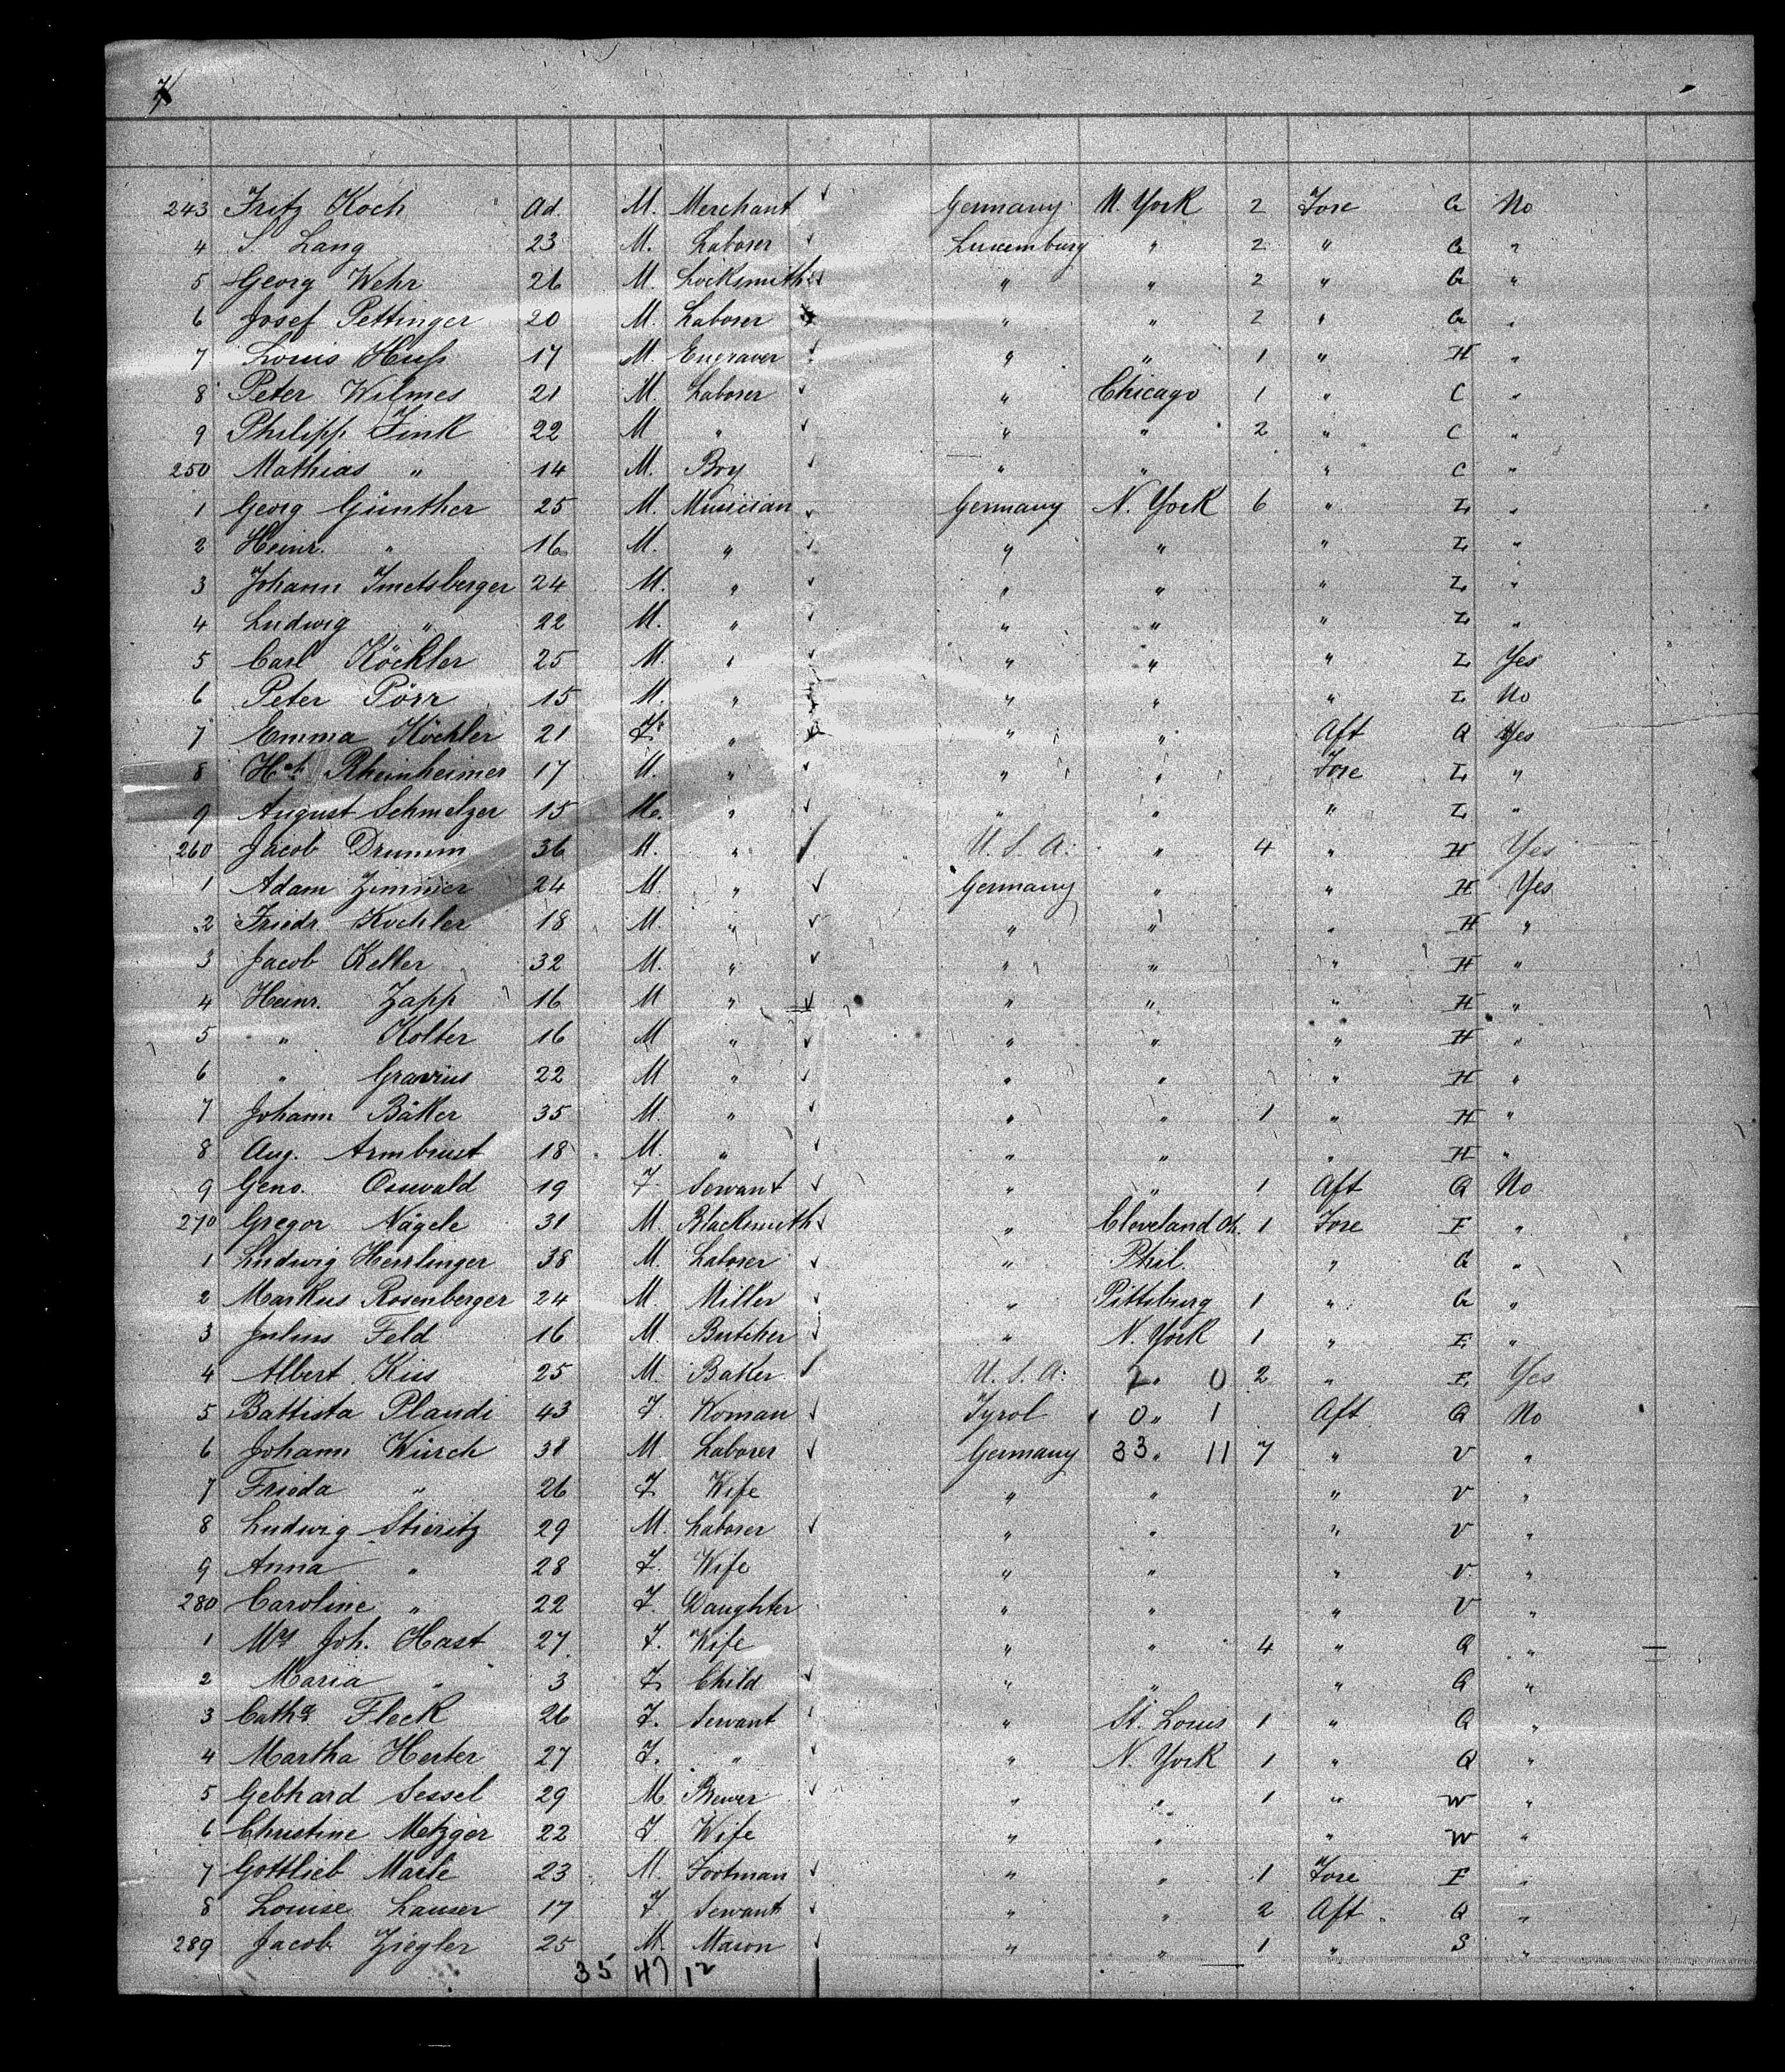 7
243 Fritz Koch Ad. M. Merchant Germany N. York 2 Fore G No
4 S. Lang 23 M. Laborer Luxemburg " 2 " G "
5 Georg Wehr 26 M. Locksmith " " 2 " G "
6 Josef Pettinger 20 M. Laborer " " 2 " G "
7 Louis Huß 17 M. Engraver " " 1 " H "
8 Peter Wilmes 21 M. Laborer " Chicago 1 " C "
9 Philipp Fink 22 M " " " 2 " C "
250 Mathias " 14 M. Boy " " " C "
1 Georg Günther 25 M. Musician Germany N. York 6 " L "
2 Heinr. " 16 M. " " " " L "
3 Johann Imetsberger 24 M. " " " " L "
4 Ludwig " 22 M. " " " " L "
5 Carl Köckler 25 M. " " " " L Yes
6 Peter Pörr 15 M. " " " " L No
7 Emma Köckler 21 F. " " " Aft Q Yes
8 Hch Rheinheimer 17 M. " " " Fore L "
9 August Schmelzer 15 M. " " " " L "
260 Jacob Drumm 36 M. " U. S. A. " 4 " H Yes
1 Adam Zimmer 24 M. " Germany " " H Yes
2 Friedr. Kochler 18 M. " " " " H "
3 Jacob Keller 32 M. " " " " H "
4 Heinr. Zapp 16 M " " " " H "
5 " Kolter 16 M " " " " H "
6 " Gravius 22 M " " " " H "
7 Johann Bäker 35 M. " " " 1 " H "
8 Aug. Armbrust 18 M. " " " " H "
9 Geno. Oswald 19 F. Servant " " 1 Aft Q No
270 Gregor Nägele 31 M. Blacksmith " Cleveland Oh. 1 Fore F "
1 Ludwig Herrlinger 38 M. Laborer " Phil. " G "
2 Markus Rosenberger 24 M. Miller " Pittsburg 1 " G "
3 Julius Feld 16 M. Butcher " N. York 1 " E "
4 Albert Kiss 25 M. Baker U. S. A. 2 " 0 2 " E Yes
5 Battista Plaudi 43 F. Woman Tyrol 0 " 1 Aft Q No
6 Johann Würch 38 M Laborer Germany 33 " 11 7 " V "
7 Frieda " 26 F Wife " " " V "
8 Ludwig Stieritz 29 M. Laborer " " " V "
9 Anna " 28 F. Wife " " " V "
280 Caroline " 22 F. Daughter " " " V "
1 Mrs Joh. Hast 27 F. Wife " " 4 " Q "
2 Maria " 3 F. Child " " " Q "
3 Catha Fleck 26 F. Servant " St. Louis 1 " Q "
4 Martha Herter 27 F. " " N. York 1 " Q "
5 Gebhard Sessel 29 M. Brewer " " 1 " W "
6 Christine Metzger 22 F Wife " " " W "
7 Gottlieb Marle 23 M. Footman " " 1 Fore F "
8 Louise Lauser 17 F. Servant " " 2 Aft Q "
289 Jacob Ziegler 25 M. Mason " " 1 " S "
35 47 12